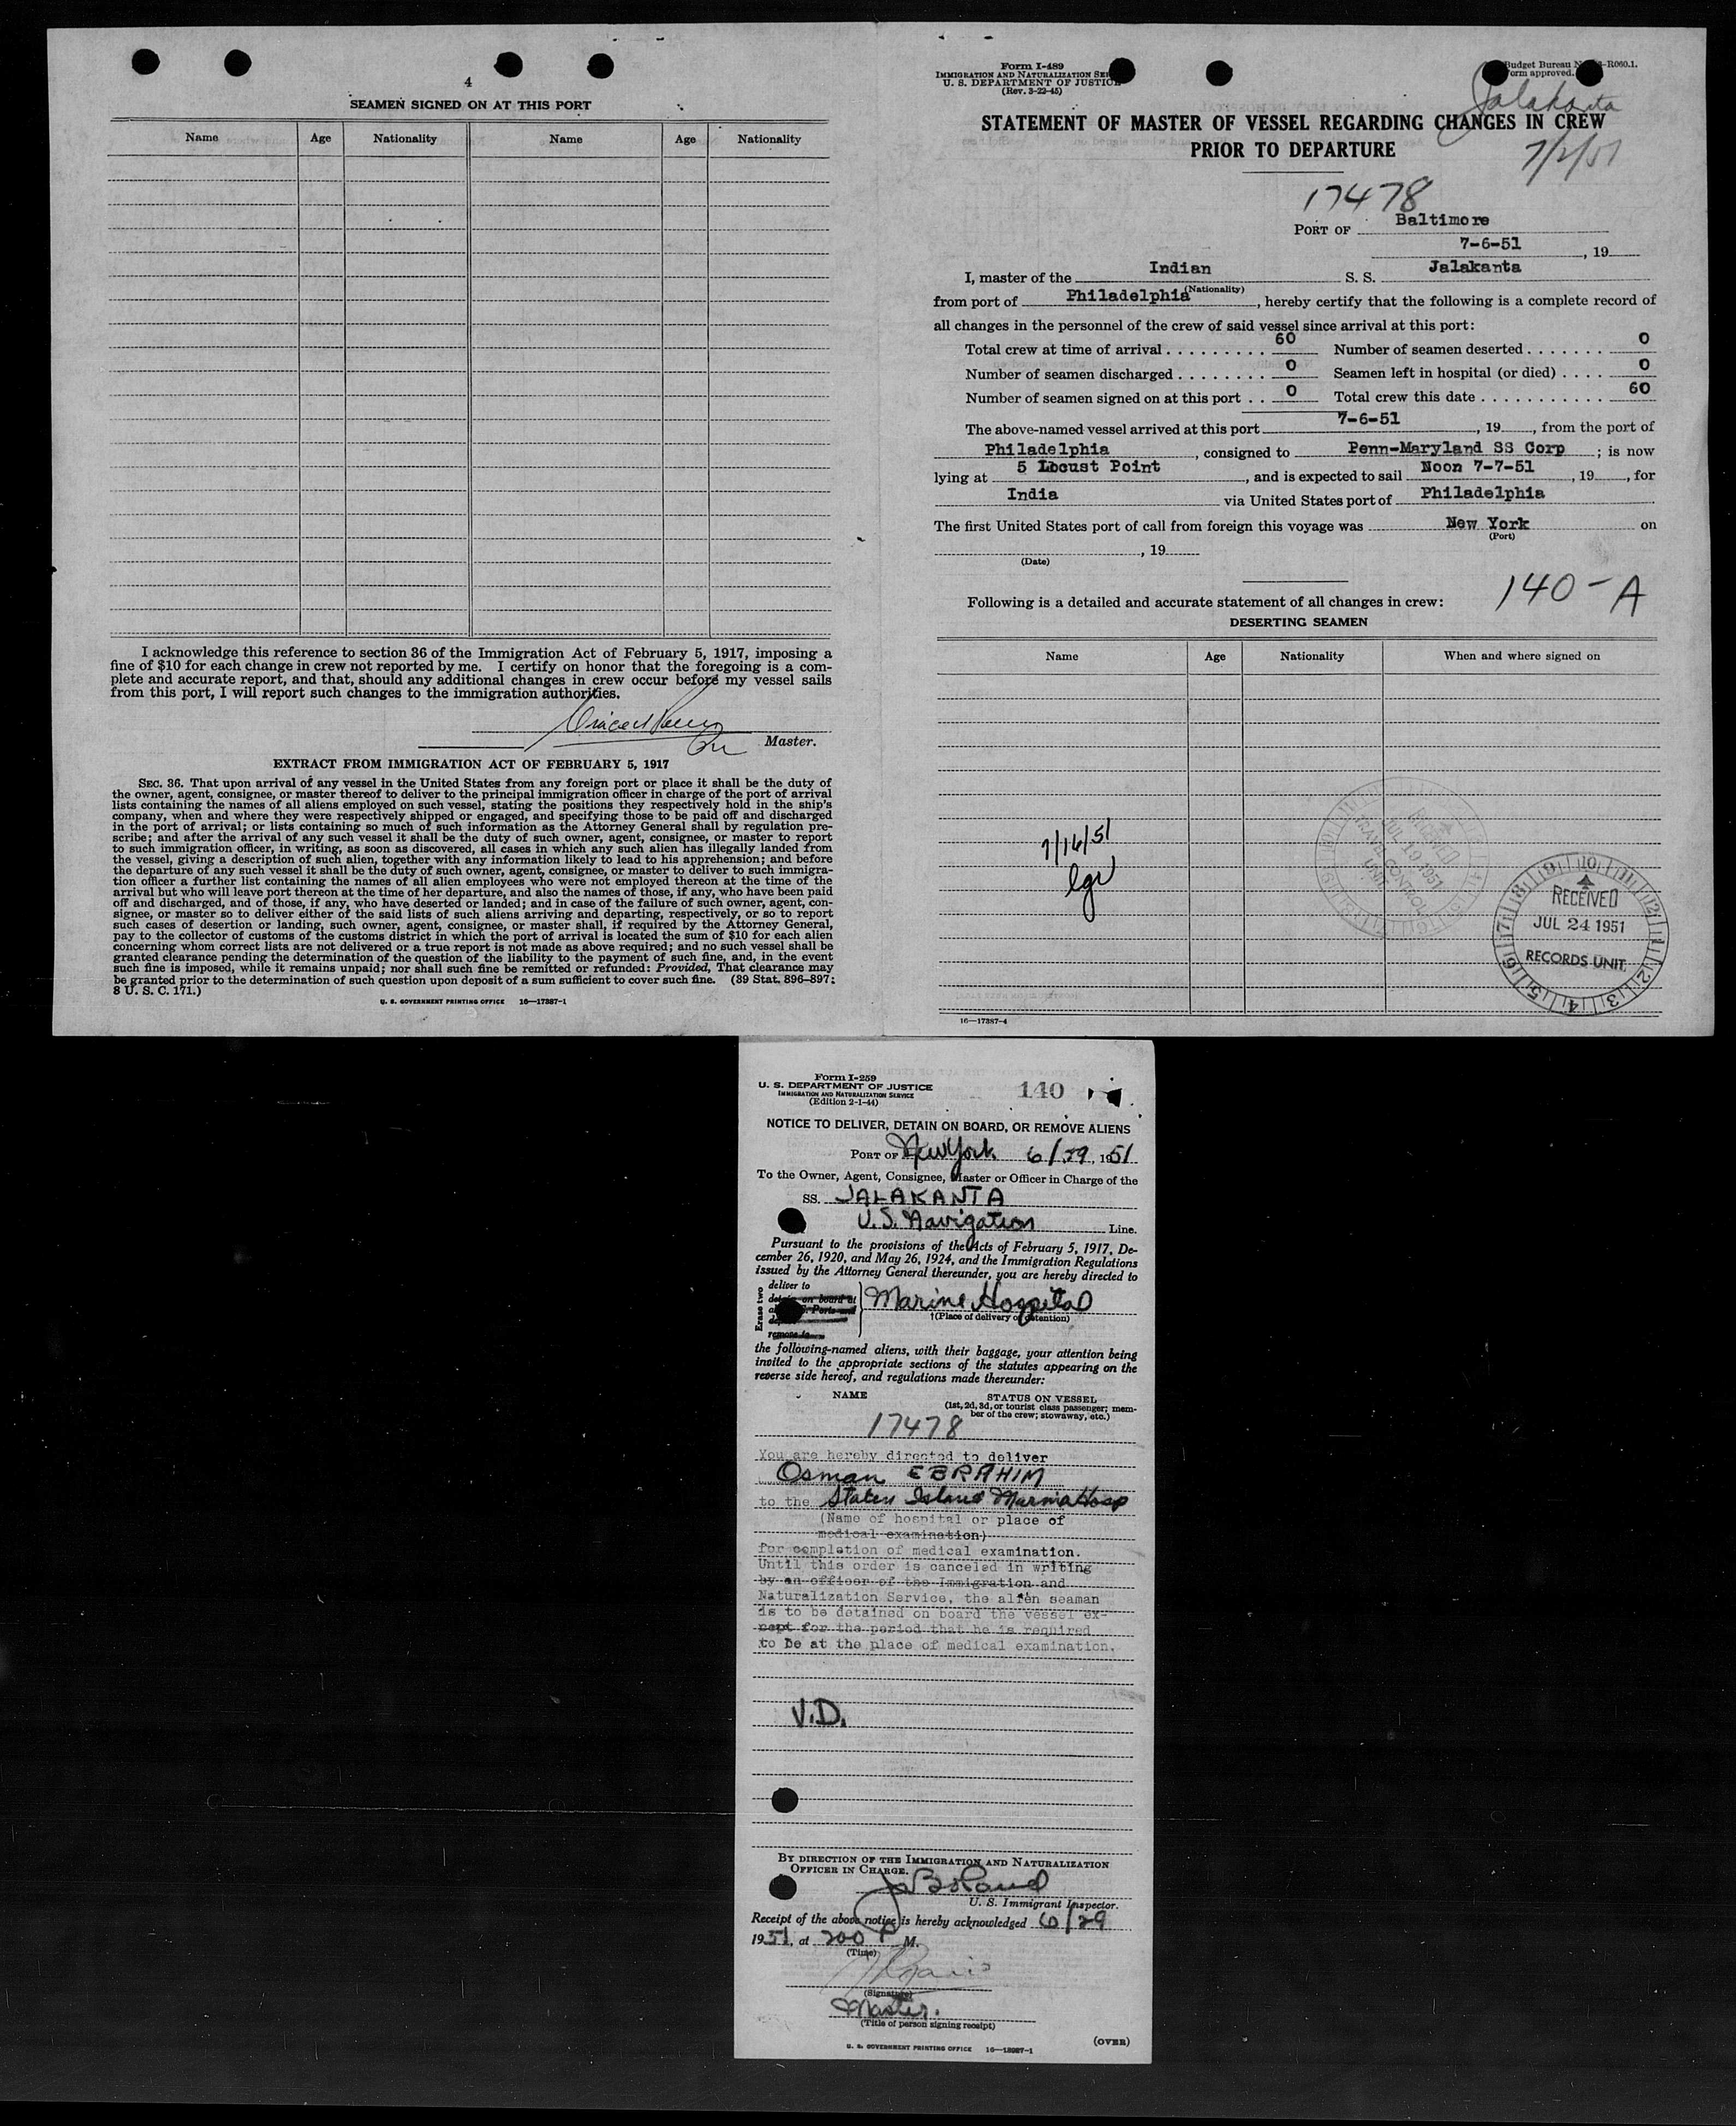 4
SEAMEN SIGNED ON AT THIS PORT
Name Age Nationality Name Age Nationality
I acknowledge this reference to section 36 of the Immigration Act of February 5, 1917, imposing a
fine of $10 for each change in crew not reported by me. I certify on honor that the foregoing is a com-
plete and accurate report, and that, should any additional changes in crew occur before my vessel sails
from this port, I will report such changes to the immigration authorities.
Master.
EXTRACT FROM IMMIGRATION ACT OF FEBRUARY 5, 1917
SEC. 36. That upon arrival of any vessel in the United States from any foreign port or place it shall be the duty of
the owner, agent, consignee, or master thereof to deliver to the principal immigration officer in charge of the port of arrival
lists containing the names of all aliens employed on such vessel, stating the positions they respectively hold in the ship's
company, when and where they were respectively shipped or engaged, and specifying those to be paid off and discharged
in the port of arrival; or lists containing so much of such information as the Attorney General shall by regulation pre-
scribe; and after the arrival of any such vessel it shall be the duty of such owner, agent, consignee, or master to report
to such immigration officer, in writing, as soon as discovered, all cases in which any such alien has illegally landed from
the vessel, giving a description of such alien, together with any information likely to lead to his apprehension; and before
the departure of any such vessel it shall be the duty of such owner, agent, consignee, or master to deliver to such immigra-
tion officer a further list containing the names of all alien employees who were not employed thereon at the time of the
arrival but who will leave port thereon at the time of her departure, and also the names of those, if any, who have been paid
off and discharged, and of those, if any, who have deserted or landed; and in case of the failure of such owner, agent, con-
signee, or master so to deliver either of the said lists of such aliens arriving and departing, respectively, or so to report
such cases of desertion or landing, such owner, agent, consignee, or master shall, if required by the Attorney General,
pay to the collector of customs of the customs district in which the port of arrival is located the sum of $10 for each alien
concerning whom correct lists are not delivered or a true report is not made as above required; and no such vessel shall be
granted clearance pending the determination of the question of the liability to the payment of such fine, and, in the event
such fine is imposed, while it remains unpaid; nor shall such fine be remitted or refunded: Provided, That clearance may
be granted prior to the determination of such question upon deposit of a sum sufficient to cover such fine. (39 Stat. 896-897;
8 U. S. C. 171.)
U. S. GOVERNMENT PRINTING OFFICE 16—17387-1
Form I-489
IMMIGRATION AND NATURALIZATION
U. S. DEPARTMENT OF JUSTICE
(Rev. 3-22-45)
Budget Bureau -R060.1.
orm approved.
Jalakanta
STATEMENT OF MASTER OF VESSEL REGARDING CHANGES IN CREW
PRIOR TO DEPARTURE
7/2/51
17478
PORT OF Baltimore
7-6-51, 19
I, master of the Indian S. S. Jalakanta
(Nationality)
from port of Philadelphia, hereby certify that the following is a complete record of
all changes in the personnel of the crew of said vessel since arrival at this port:
Total crew at time of arrival 60 Number of seamen deserted 0
Number of seamen discharged 0 Seamen left in hospital (or died) 0
Number of seamen signed on at this port 0 Total crew this date 60
The above-named vessel arrived at this port 7-6-51, 19, from the port of
Philadelphia, consigned to Penn-Maryland SS Corp; is now
lying at 5 Locust Point, and is expected to sail Noon 7-7-51, 19, for
India via United States port of Philadelphia
The first United States port of call from foreign this voyage was New York on
(Port)
, 19
(Date)
140-A
Following is a detailed and accurate statement of all changes in crew:
DESERTING SEAMEN
Name Age Nationality When and where signed on
7/16/51
RECEIVED
JUL 19 1951
TRAVEL CONTROL
UNIT
RECEIVED
JUL 24 1951
RECORDS UNIT
16—17387-4
Form I-259
U. S. DEPARTMENT OF JUSTICE
IMMIGRATION AND NATURALIZATION SERVICE
(Edition 2-1-44)
140
NOTICE TO DELIVER, DETAIN ON BOARD, OR REMOVE ALIENS
PORT OF New York 6/29, 1951
To the Owner, Agent, Consignee, Master or Officer in Charge of the
SS. JALAKANTA
U.S. Navigation Line.
Pursuant to the provisions of the Acts of February 5, 1917, De-
cember 26, 1920, and May 26, 1924, and the Immigration Regulations
issued by the Attorney General thereunder, you are hereby directed to
Erase two
deliver to
detain on board at
remove to
Marine Hospital
†(Place of delivery or detention)
the following-named aliens, with their baggage, your attention being
invited to the appropriate sections of the statutes appearing on the
reverse side hereof, and regulations made thereunder:
NAME STATUS ON VESSEL
(1st, 2d, 3d, or tourist class passenger; mem-
ber of the crew; stowaway, etc.)
17478
You are hereby directed to deliver
Osman EBRAHIM
to the Staten Island Marine Hosp
(Name of hospital or place of
medical examination)
for completion of medical examination.
Until this order is canceled in writing
by an officer of the Immigration and
Naturalization Service, the alien seaman
is to be detained on board the vessel ex-
cept for the period that he is required
to be at the place of medical examination.
V.D.
BY DIRECTION OF THE IMMIGRATION AND NATURALIZATION
OFFICER IN CHARGE.
J Boland
U. S. Immigrant Inspector.
Receipt of the above notice is hereby acknowledged 6/29
1951, at 200 P M.
(Time)
(Signature)
Master.
(Title of person signing receipt)
(OVER)
U. S. GOVERNMENT PRINTING OFFICE 16—13087-1